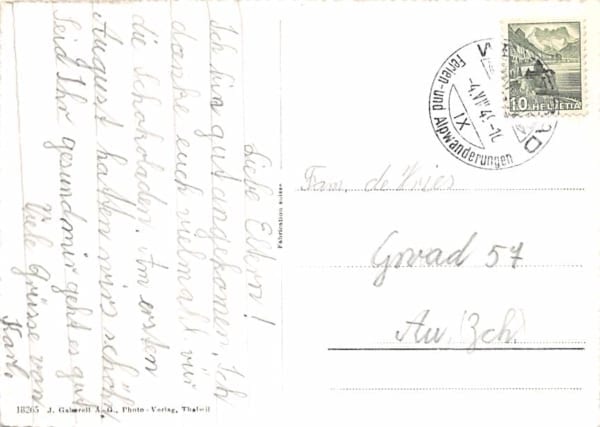 Liebe Eltern!
Ich bin gut angekomen. Ich
danke euch vielmall für
die Schokoladen. Am ersten
August hatten wirs schöhn
Seid Ihr gesund mir geht es gut
Viele Grüsse von
Karli
Fabrication suisse
18265 J. Gaberell A.-G., Photo-Verlag, Thalwil
10 HELVETIA
Ferien- und Alpwanderungen
IX
Fam. de Vries
Au (Zch.)